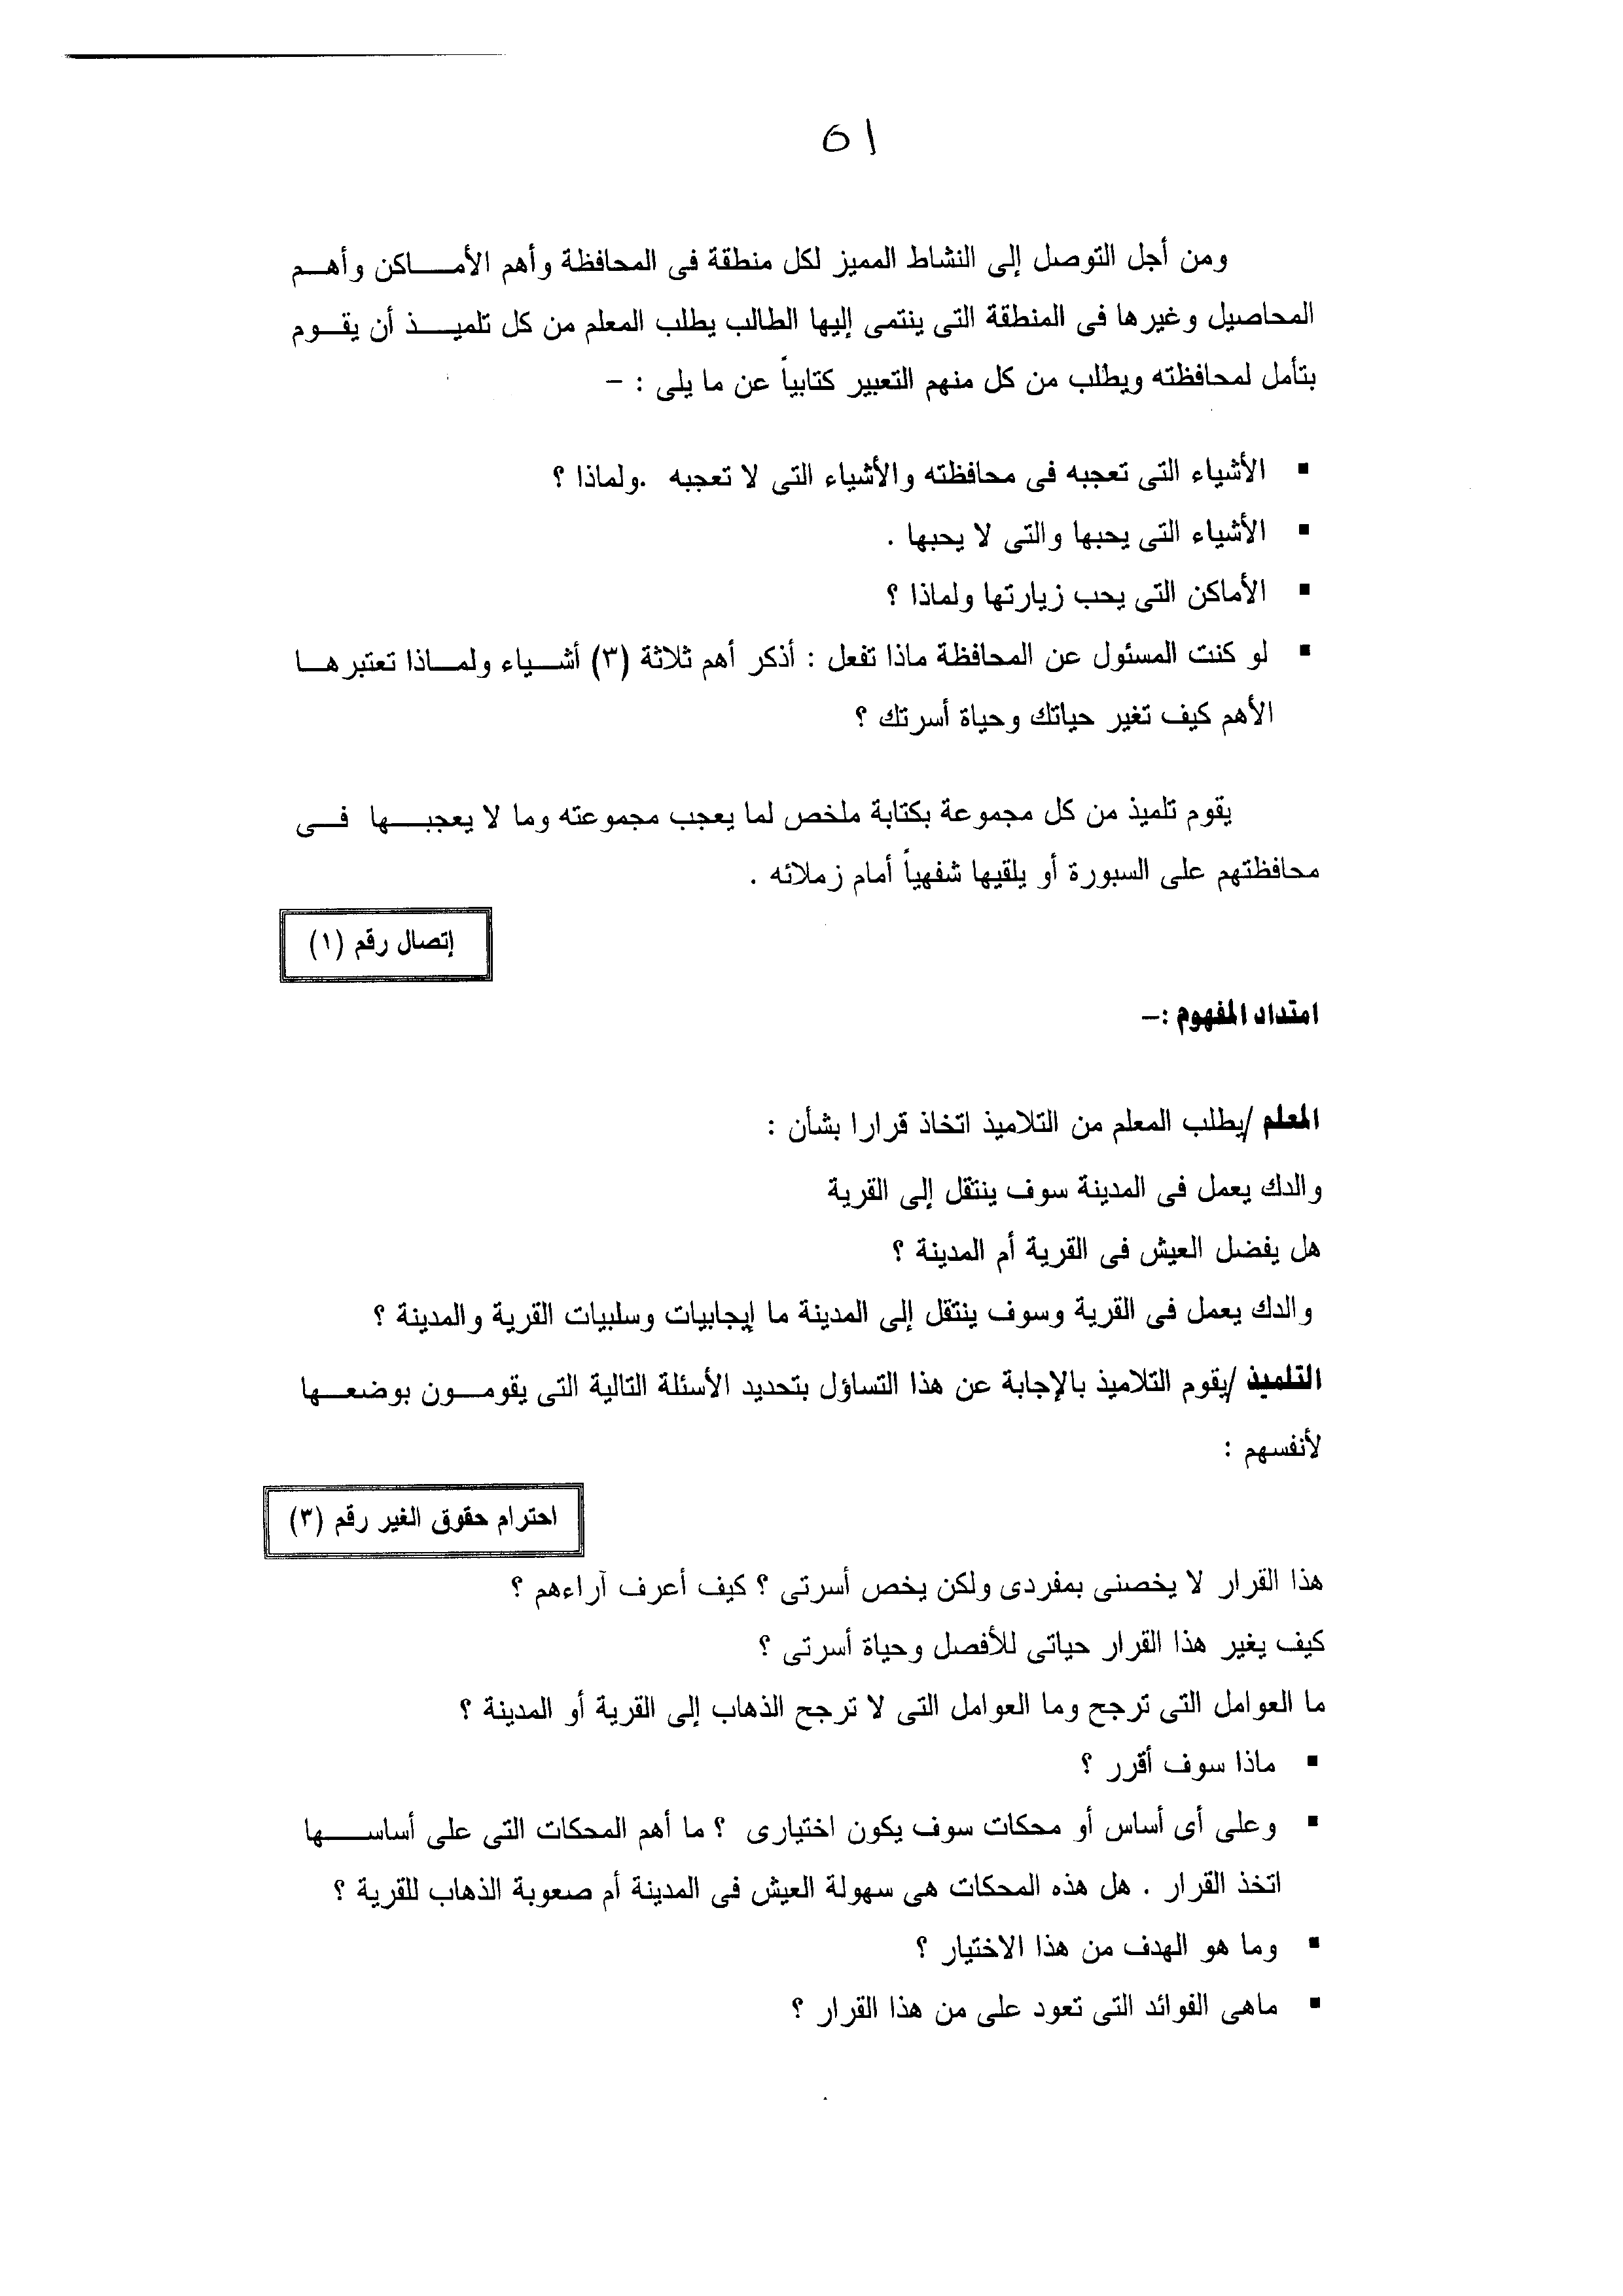 ٥١
ومن أجل التوصل إلى النشاط المميز لكل منطقة فى المحافظة وأهم الأماكن وأهم
المحاصيل وغيرها فى المنطقة التى ينتمى إليها الطالب يطلب المعلم من كل تلميذ أن يقوم
بتأمل لمحافظته ويطلب من كل منهم التعبير كتابياً عن ما يلى : –
▪ الأشياء التى تعجبه فى محافظته والأشياء التى لا تعجبه .ولماذا ؟
▪ الأشياء التى يحبها والتى لا يحبها .
▪ الأماكن التى يحب زيارتها ولماذا ؟
▪ لو كنت المسئول عن المحافظة ماذا تفعل : أذكر أهم ثلاثة (٣) أشياء ولماذا تعتبرها
الأهم كيف تغير حياتك وحياة أسرتك ؟
يقوم تلميذ من كل مجموعة بكتابة ملخص لما يعجب مجموعته وما لا يعجبها فى
محافظتهم على السبورة أو يلقيها شفهياً أمام زملائه .
إتصال رقم (١)
امتداد المفهوم :–
المعلم /يطلب المعلم من التلاميذ اتخاذ قرارا بشأن :
والدك يعمل فى المدينة سوف ينتقل إلى القرية
هل يفضل العيش فى القرية أم المدينة ؟
والدك يعمل فى القرية وسوف ينتقل إلى المدينة ما إيجابيات وسلبيات القرية والمدينة ؟
التلميذ /يقوم التلاميذ بالإجابة عن هذا التساؤل بتحديد الأسئلة التالية التى يقومون بوضعها
لأنفسهم :
احترام حقوق الغير رقم (٣)
هذا القرار لا يخصنى بمفردى ولكن يخص أسرتى ؟ كيف أعرف آراءهم ؟
كيف يغير هذا القرار حياتى للأفصل وحياة أسرتى ؟
ما العوامل التى ترجح وما العوامل التى لا ترجح الذهاب إلى القرية أو المدينة ؟
▪ ماذا سوف أقرر ؟
▪ وعلى أى أساس أو محكات سوف يكون اختيارى ؟ ما أهم المحكات التى على أساسها
اتخذ القرار . هل هذه المحكات هى سهولة العيش فى المدينة أم صعوبة الذهاب للقرية ؟
▪ وما هو الهدف من هذا الاختيار ؟
▪ ماهى الفوائد التى تعود على من هذا القرار ؟